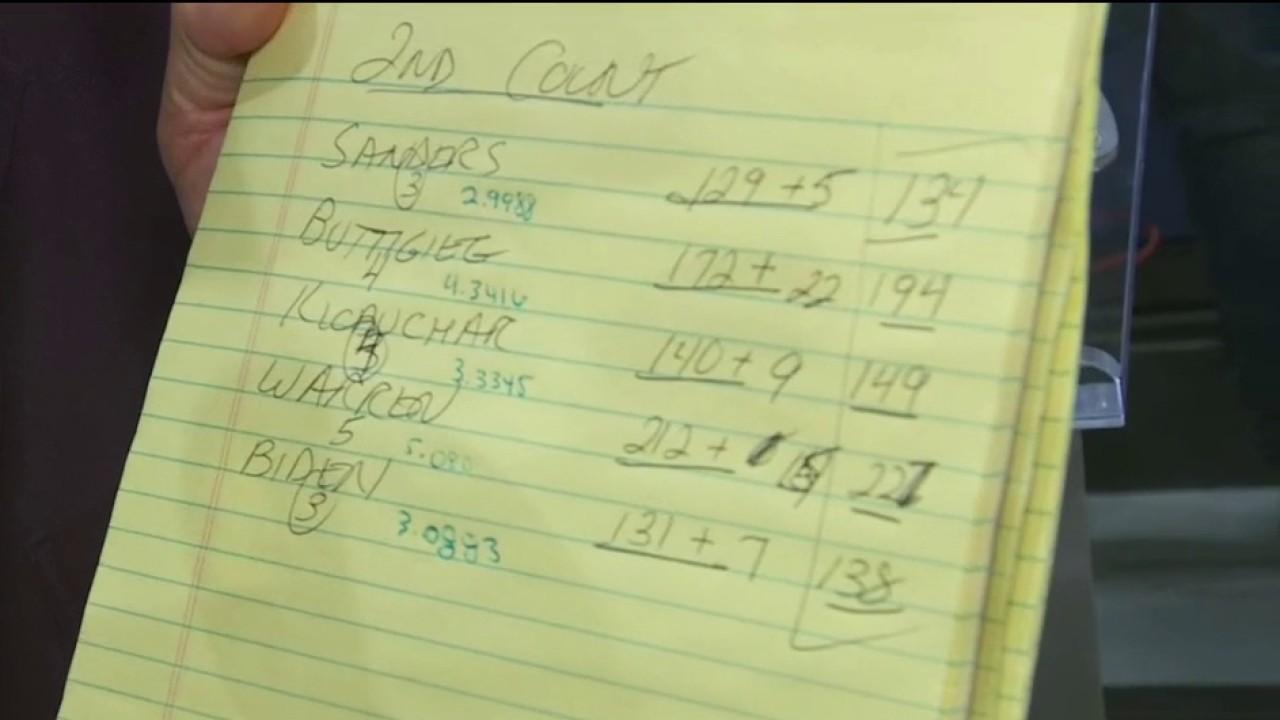 2ND COUNT
SANDERS 129 + 5 134
3 2.9988
BUTTIGIEG 172 + 22 194
4 4.3416
KLOBUCHAR 140 + 9 149
3.3345
WARREN 212 +
5 5.080
BIDEN 131 + 7 138
3 3.0883